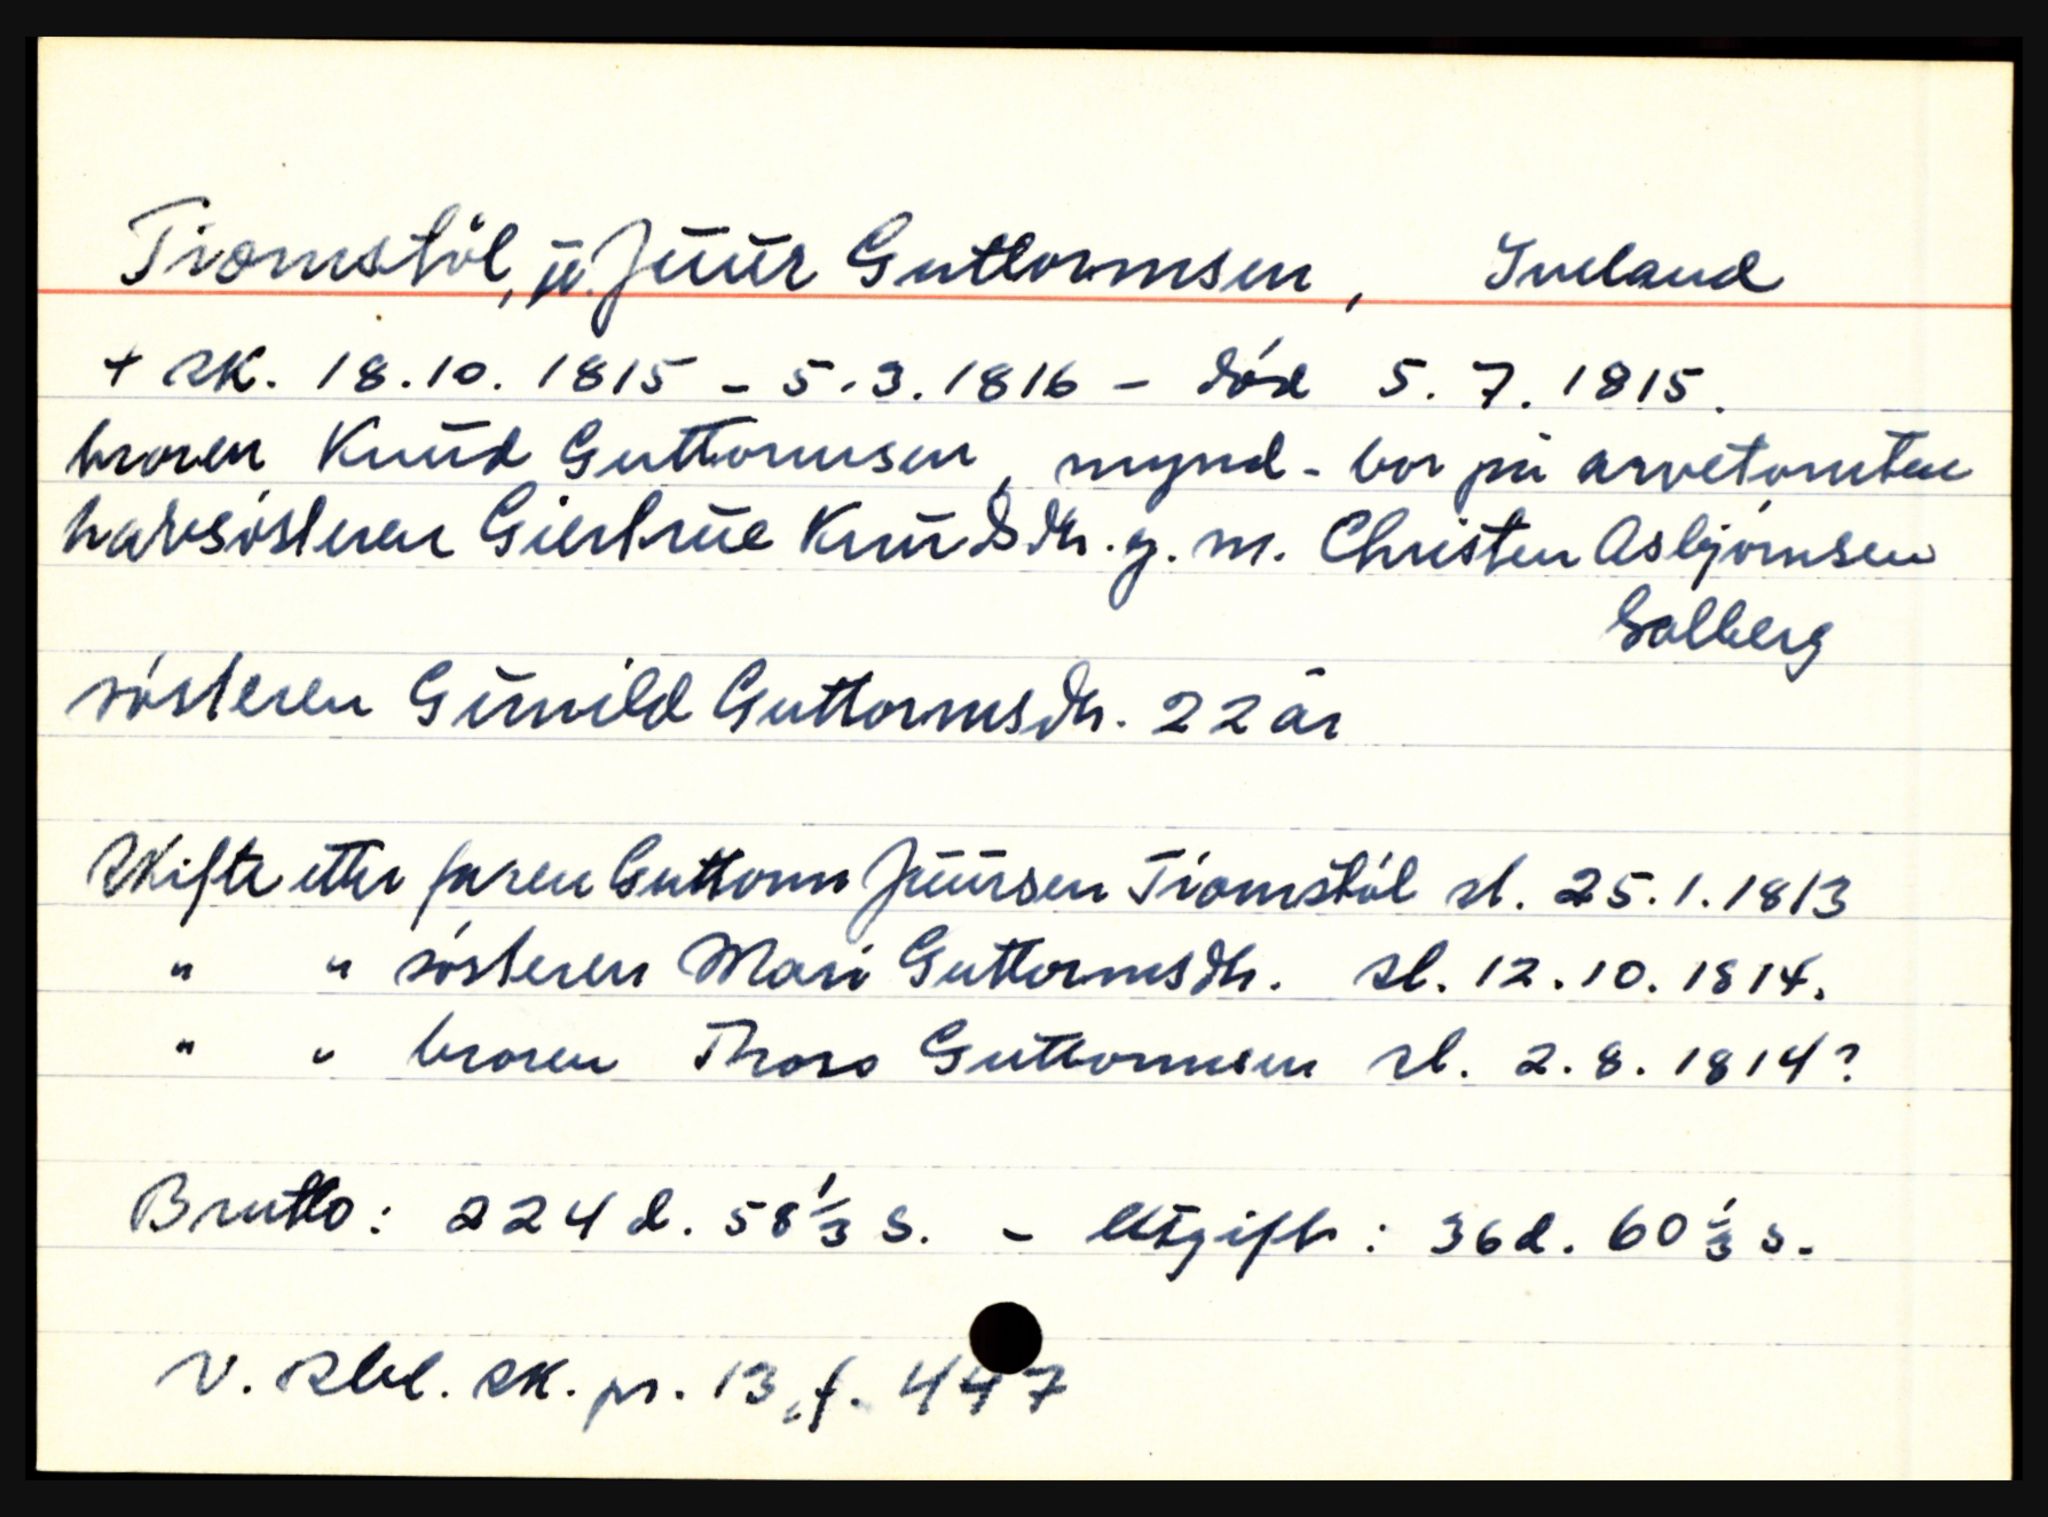 Tiomstöl, u. Juur Guttormsen, Iveland
+ sk. 18.10. 1815 - 5.3.1816 - död 5. 7. 1815.
broren Knud Guttormsen, mynd - bor på arvetomten
halvsösteren Giertrue Knudsdtr. g. m. Christen Asbjörnsen
Solberg
sösteren Gunild Guttormsdtr. 22 år
Skifte etter faren Guttorm Juursen Tiomstöl sl. 25.1.1813
" " sösteren Mari Guttormsdtr. sl. 12.10.1814.
" " broren Thoro Guttormsen sl. 2.8.1814?
Brutto: 224 d. 58 1/3 s. - Utgift: 36 d. 60 1/3 s.
V. Rbd. sk. pr. 13, f. 447